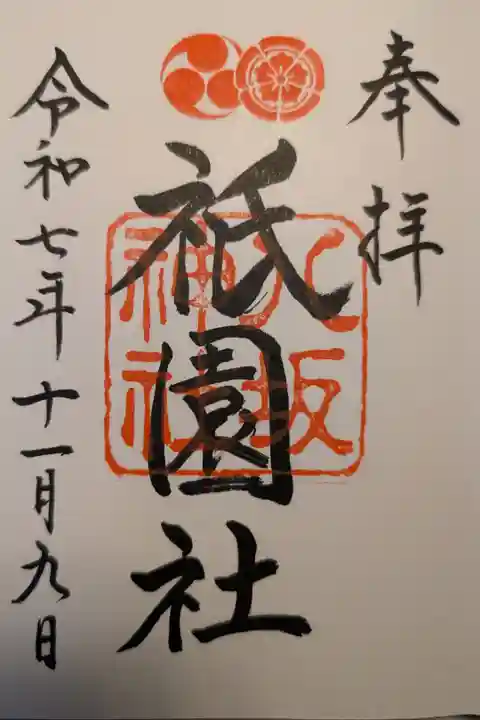 奉拝
八坂
神社
祇園社
令和七年十一月九日